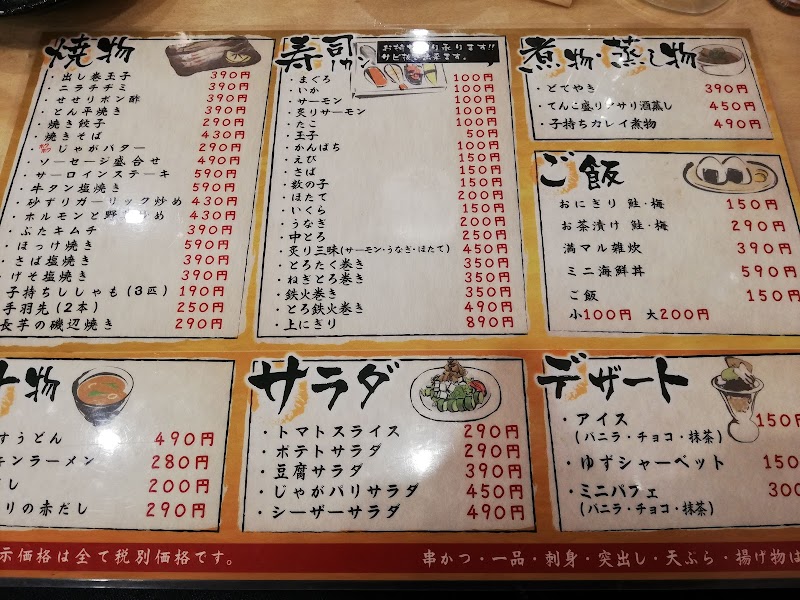 焼物
・出し巻玉子 390円
・ニラチヂミ 390円
・せせりポン酢 390円
・とん平焼き 390円
・焼き餃子 290円
・焼きそば 430円
・じゃがバター 290円
・ソーセージ盛合せ 490円
・サーロインステーキ 590円
・牛タン塩焼き 590円
・砂ずりガーリック炒め 430円
・ホルモンと野菜炒め 430円
・ぶたキムチ 390円
・ほっけ焼き 590円
・さば塩焼き 390円
・げそ塩焼き 390円
子持ちししゃも(3匹) 190円
手羽先(2本) 250円
長芋の磯辺焼き 290円
寿司
お持ち帰り承ります!!
サビ抜き出来ます。
・まぐろ 100円
・いか 100円
・サーモン 100円
・炙りサーモン 100円
・たこ 100円
・玉子 50円
・かんぱち 100円
・えび 150円
・さば 150円
・数の子 150円
・ほたて 200円
・いくら 150円
・うなぎ 200円
・中とろ 250円
・炙り三昧(サーモン・うなぎ・ほたて) 450円
・とろたく巻き 350円
・ねぎとろ巻き 350円
・鉄火巻き 350円
・とろ鉄火巻き 490円
・上にぎり 890円
煮物・蒸し物
・どてやき 390円
・てんこ盛りアサリ酒蒸し 450円
・子持ちカレイ煮物 490円
ご飯
おにぎり 鮭・梅 150円
お茶漬け 鮭・梅 290円
満マル雑炊 390円
ミニ海鮮丼 590円
ご飯 150円
小100円 大200円
汁物
すうどん 490円
キンラーメン 280円
だし 200円
りの赤だし 290円
サラダ
・トマトスライス 290円
・ポテトサラダ 290円
・豆腐サラダ 390円
・じゃがパリサラダ 450円
・シーザーサラダ 490円
デザート
・アイス 150円
(バニラ・チョコ・抹茶)
・ゆずシャーベット 150
・ミニパフェ 300
(バニラ・チョコ・抹茶)
示価格は全て税別価格です。
串かつ・一品・刺身・突出し・天ぷら・揚げ物は